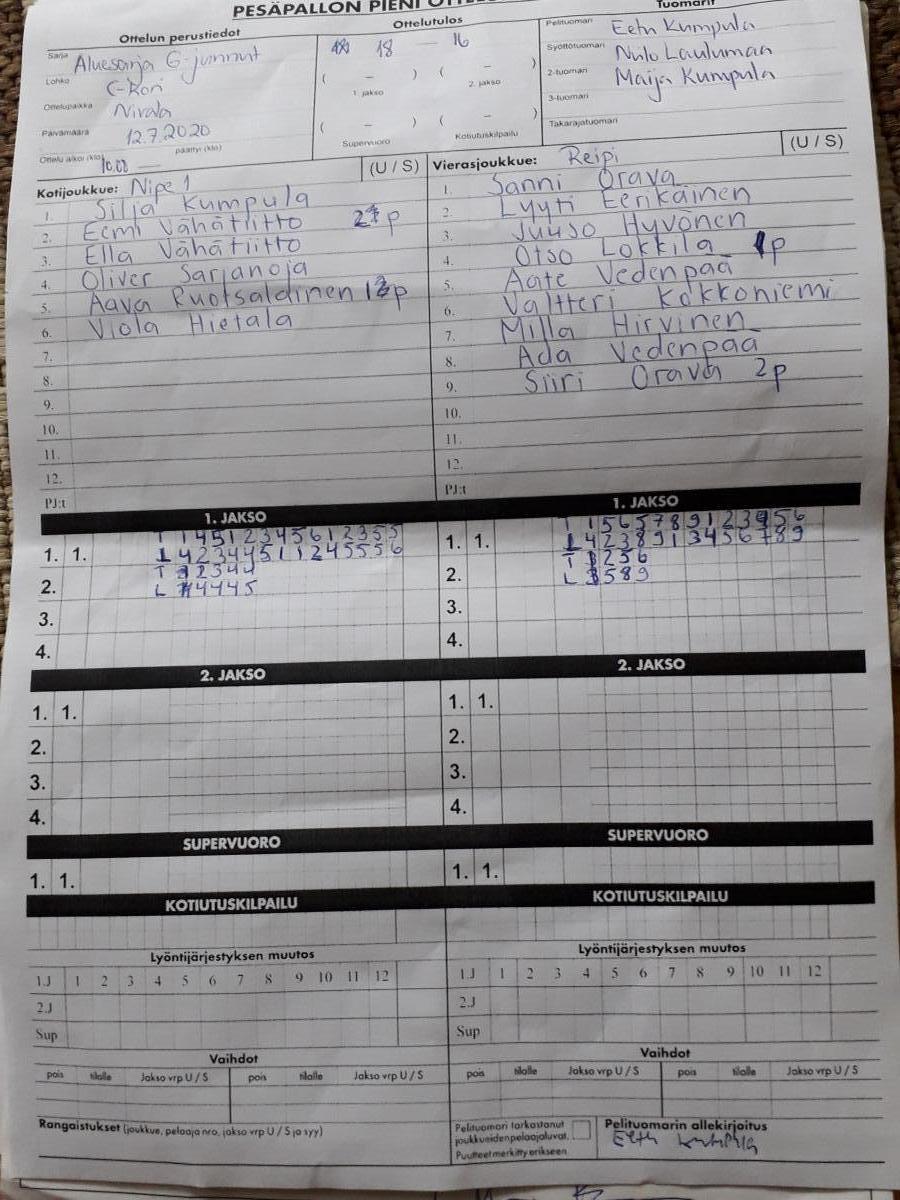 PESÄPALLON PIENI
Ottelun perustiedot
Sarja Aluesarja G-junnut
Lohko C-Kori
Ottelupaikka Nivala
Päivämäärä 12.7.2020
Ottelu alkoi (klo) 10.00 — päättyi (klo)
Ottelutulos
18 — 16
( – ) ( – )
1. jakso 2. jakso
( – ) ( – )
Supervuoro Kotiutuskilpailu
Tuomarit
Pelituomari Eetu Kumpula
Syöttötuomari Niilo Laulumaa
2-tuomari Maija Kumpula
3-tuomari
Takarajatuomari
Kotijoukkue: Nipe 1 (U / S)
1. Silja Kumpula
2. Eemi Vähätiitto p
3. Ella Vähätiitto
4. Oliver Sarjanoja
5. Aava Ruotsalainen p
6. Viola Hietala
7.
8.
9.
10.
11.
12.
PJ:t
Vierasjoukkue: Reipi (U / S)
1. Sanni Orava
2. Lyyti Eerikäinen
3. Juuso Hyvönen
4. Otso Lokkila 1p
5. Aate Vedenpää
6. Valtteri Kokkoniemi
7. Milla Hirvinen
8. Ada Vedenpää
9. Siiri Orava 2p
10.
11.
12.
PJ:t
1. JAKSO
T 1 4 5 1 2 3 4 5 6 1 2 3 5 5
1. 1. L 4 2 3 4 4 5 1 1 2 4 5 5 5 6
T 2 3 4 4
2. L 4 4 4 5
3.
4.
1. JAKSO
T 1 5 6 5 7 8 9 1 2 3 5 6
1. 1. L 4 2 3 8 9 1 3 4 5 6 7 8 9
T 2 5 6
2. L 5 8 9
3.
4.
2. JAKSO
1. 1.
2.
3.
4.
2. JAKSO
1. 1.
2.
3.
4.
SUPERVUORO
1. 1.
SUPERVUORO
1. 1.
KOTIUTUSKILPAILU
KOTIUTUSKILPAILU
Lyöntijärjestyksen muutos
1.J 1 2 3 4 5 6 7 8 9 10 11 12
2.J
Sup
Lyöntijärjestyksen muutos
1.J 1 2 3 4 5 6 7 8 9 10 11 12
2.J
Sup
Vaihdot
pois tilalle Jakso vrp U / S pois tilalle Jakso vrp U / S
Vaihdot
pois tilalle Jakso vrp U / S pois tilalle Jakso vrp U / S
Rangaistukset (joukkue, pelaaja nro, jakso vrp U / S ja syy)
Pelituomari tarkastanut
joukkueiden pelaajaluvat.
Puutteet merkitty erikseen
Pelituomarin allekirjoitus
Eetu Kumpula